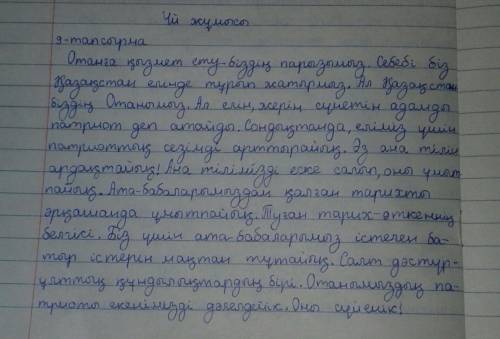 Үй жұмысы
9-тапсырма
Отанға қызмет ету-біздің парызымыз. Себебі біз
Қазақстан елінде тұрып жатырмыз. Ал Қазақстан
біздің Отанымыз. Ал елін, жерін сүйетін адамды
патриот деп атайды. Сондықтанда, еліміз үшін
патриоттық сезімді арттырайық. Өз ана тілім
ардақтайық! Ана тілімізді еске салып, оны ұмыт
пайық. Ата-бабаларымыздан қалған тарихты
әрқашанда ұмытпайық. Туған тарих-өткеннің
белгісі. Біз үшін ата-бабаларымыз істеген ба-
тыр істерін мақтан тұтайық. Салт дәстүр-
ұлттық құндылықтардың бірі. Отанымыздың па-
триоты екенімізді дәлелдейік. Оны сүйейік!